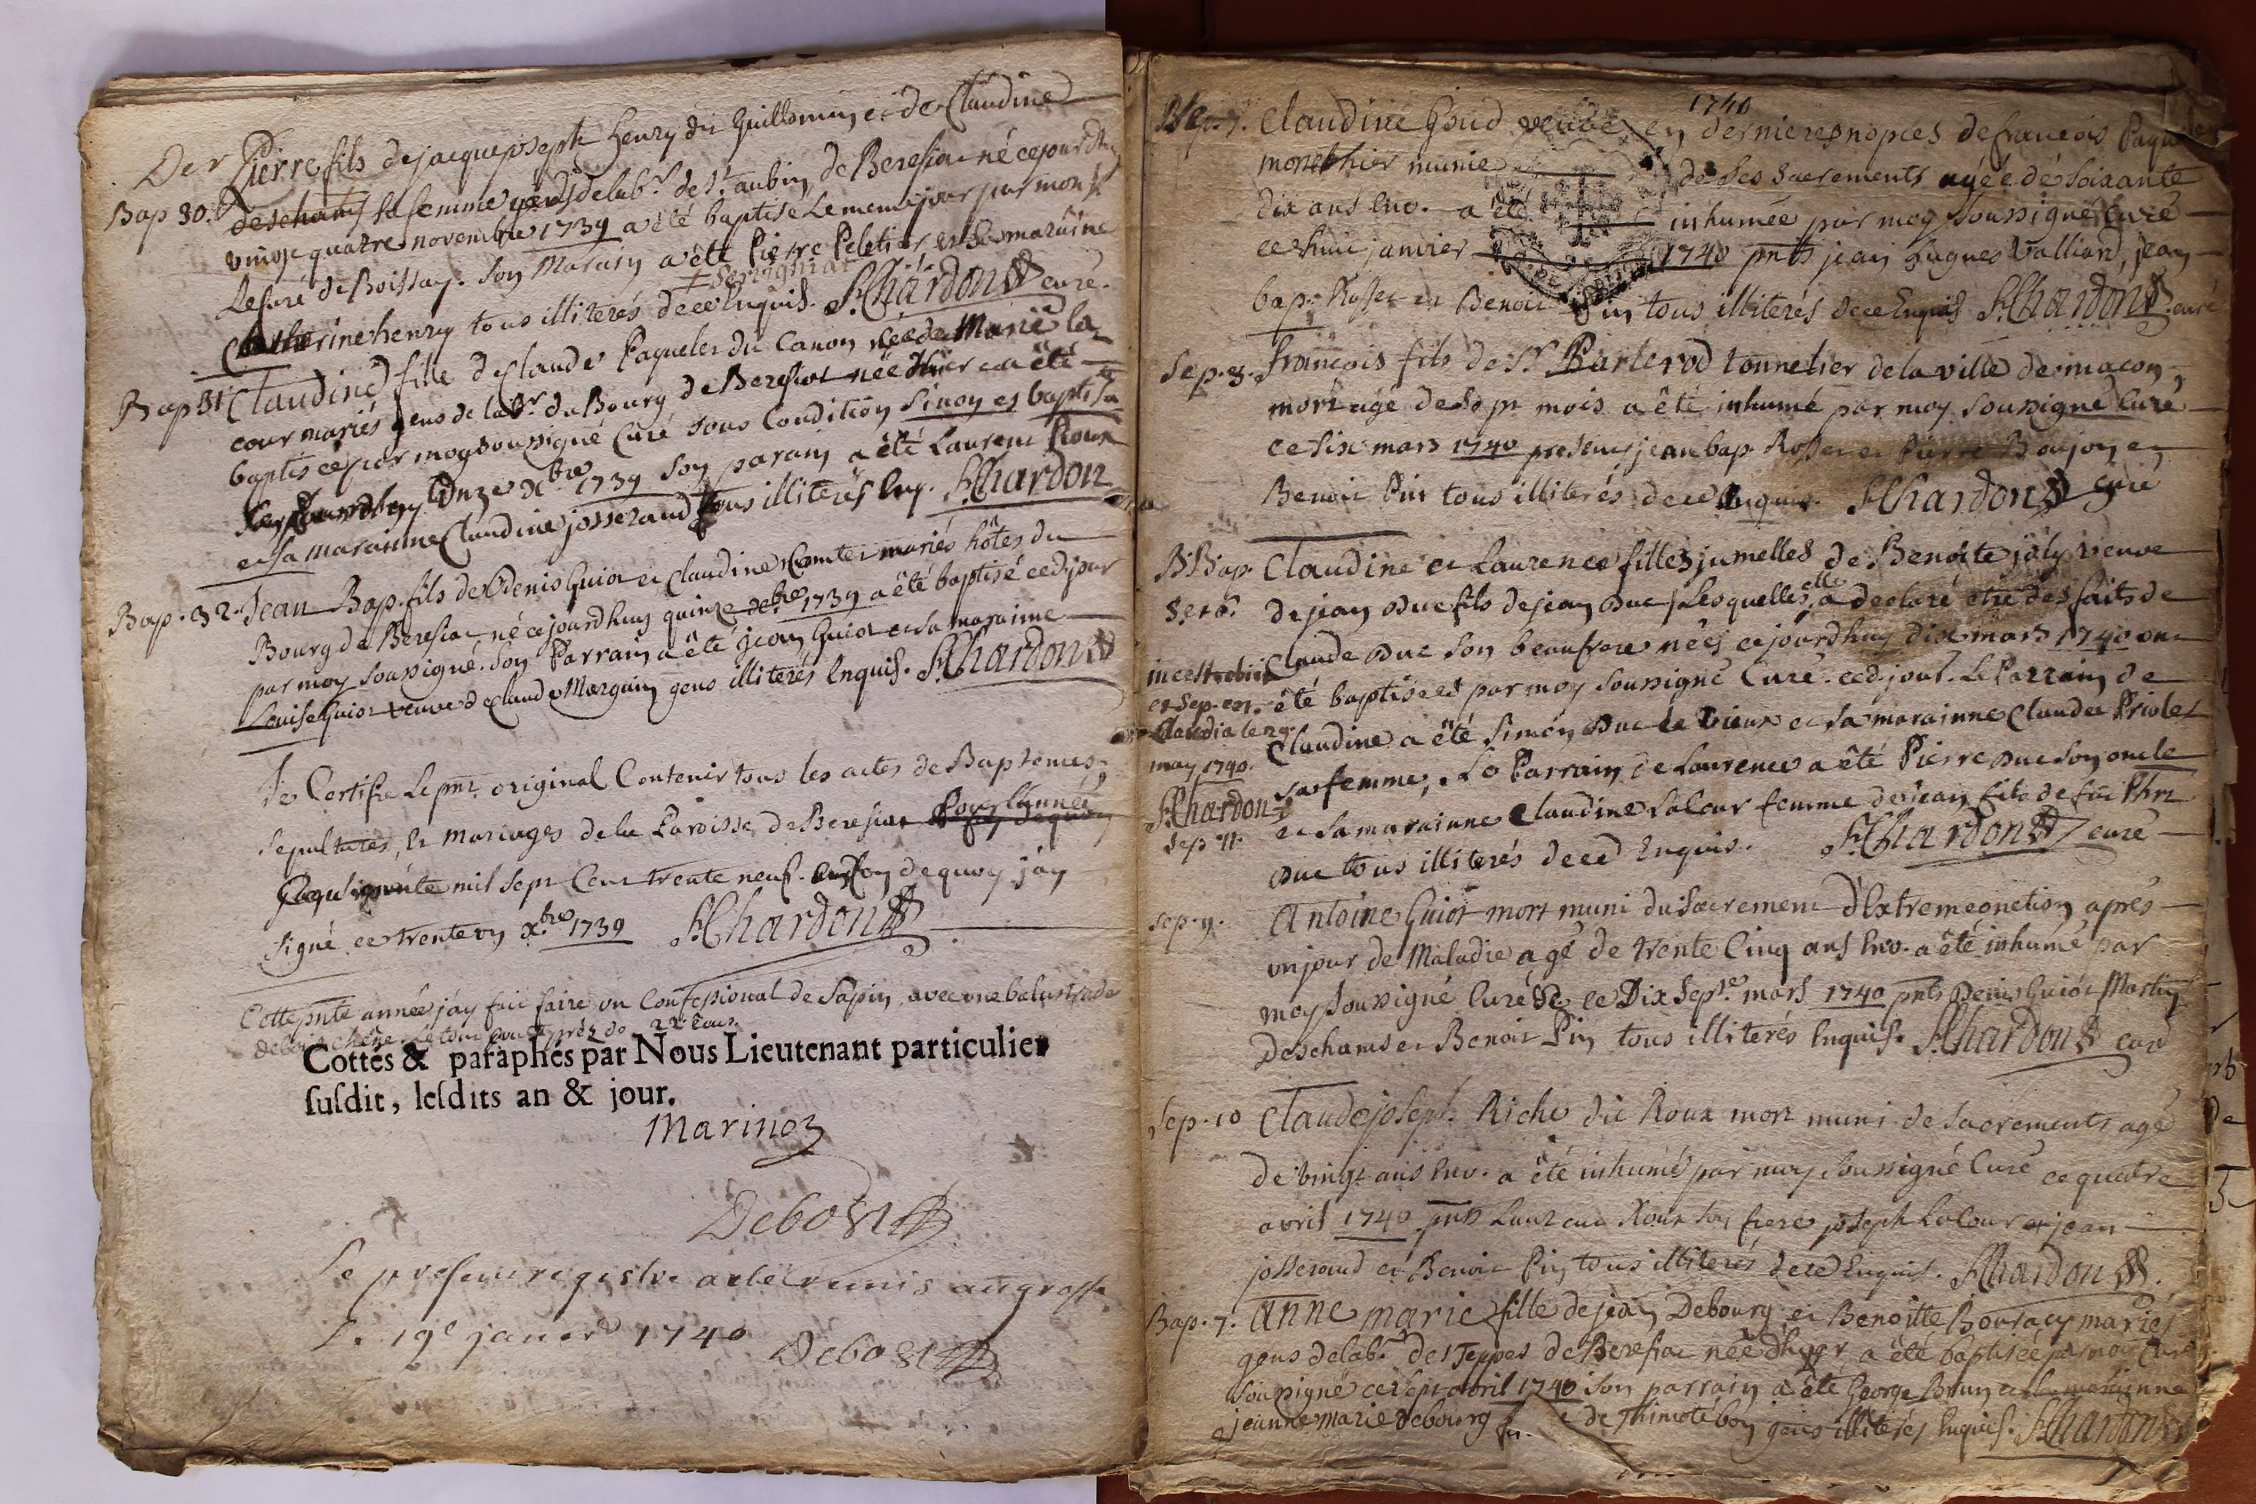 Bap 30. Pierre fils de jacque joseph henry dit Guillomin et de Claudine
deschams sa femme gens de labr. de St. aubin de Beresiac né ce jourdhuy
vingt quatre novembre 1739 a été baptisé le meme jour par mons.r
le curé de Boissay. Son Parain a été Pierre Peletier et sa maraine
Catherine henry tous illiterés de ce Enquis. F. Chardon curé.
Bap 31 Claudine fille de Claude Paquelet du Canon et de Marie la
cour mariés gens de labr. du Bourg de Beresiac née d'hier et a été
baptisée par moy soussigné Curé sous Condition si non es baptisa
onze xbre 1739 son parain a été Laurent Roux
et sa marainne Claudine josserand tous illiterés Enq. F. Chardon
Bap. 32. Jean Bap. fils de Denis Guiot et Claudine Comte mariés hôtes du
Bourg de Beresiac né ce jourdhuy quinze debre 1739 a été baptisé ced. jour
par moy soussigné. Son Parrain a été jean Guiot et sa maraine
Louise Guiot veuve de Claude Marguin gens illiterés Enquis. F. Chardon
Je Certifie le pnt. original Contenir tous les actes de Baptemes,
sepultures, et mariages de la Paroisse de Beresiac
mil sept Cent trente neuf. En foy de quoy j'ay
signé ce trente un xbre 1739 F. Chardon
Cette pnte année j'ay fait faire un Confessional de Sapin, avec une balustrade
de bois chêne. Le tout
Cottés & paraphés par Nous Lieutenant particulier
susdit, lesdits an & jour.
Marinoz
Debost
Le present registre a été remis au greffe
le 19e janier 1740 Debost
1740
Sep. 7. Claudine Goud veuve en dernieres nopces de francois Paquelet
morte hier munie de ses sacrements agée de soixante
dix ans Env. a été inhumée par moy soussigné Curé
ce huit janvier 1740 pnts jean hugues Valliard, jean
bap. Rosset et Benoit Pin tous illiterés de ce Enquis F. Chardon curé
Sep. 8. François fils de Sr Barterod tonnelier de la ville de macon,
mort agé de sept mois a été inhumé par moy soussigné Curé
ce six mars 1740 presents jean bap. Rosset et Pierre Boujon et
Benoit Pin tous illiterés de ce Enquis. F. Chardon curé
B. Bap. Claudine et Laurence filles jumelles de Benoite joly veuve
5 et 6. de jean Duc fils de jean Duc, Lesquelles elle a declaré être des faits de
Claude Duc son beaufrere nées ce jourdhuy dix mars 1740 ont
été baptisées par moy soussigné Curé ced. jour. Le Parrain de
Claudine a été Simon Duc le vieux et sa marainne Claudine Priolet
sa femme, Le Parrain de Laurence a été Pierre Duc son oncle
et sa marainne Claudine Lacour femme de jean fils de fût Phrt
Duc tous illiterés de ce Enquis. F. Chardon curé
et Sep. est
Claudia le 29
may 1740.
F. Chardon
Sep. 11.
Sep. 9. Antoine Guiot mort muni du Sacrement d'Extremeonction après
un jour de Maladie agé de trente Cinq ans Env. a été inhumé par
moy soussigné Curé ce Dix Septe mars 1740 pnts Denis Guiot Martin
Deschams et Benoit Pin tous illiterés Enquis. F. Chardon curé
Sep. 10 Claude joseph Riche dit Roux mort muni de sacrements agé
de vingt ans Env. a été inhumé par moy soussigné Curé ce quatre
avril 1740 pnts Laurent Roux son frere joseph Lacour et jean
josserand et Benoit Pin tous illiterés de ce Enquis. F. Chardon.
Bap. 7. Anne marie fille de jean Debourg et Benoîtte Boutacy mariés
gens de labr. des Teppes de Beresiac née d'hyer a été baptisée par moy Curé
soussigné ce sept avril 1740 son parrain a été George Brun et sa marainne
jeanne marie debourg de Thimoté bon gens illiterés Enquis. F. Chardon